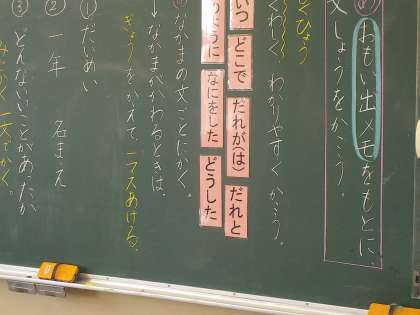 おもい出メモをもとに、
文しょうをかこう。
ひょう
くわしく わかりやすく かこう。
いつ どこで だれが(は) だれと
のように なにをした どうした
なかまの文ごとにかく。
→なかまがかわるときは、
ぎょうをかえて、一マスあける。
① だいめい
② 一年 名まえ
③ どんないいことがあったか
みじかく一文でかく。